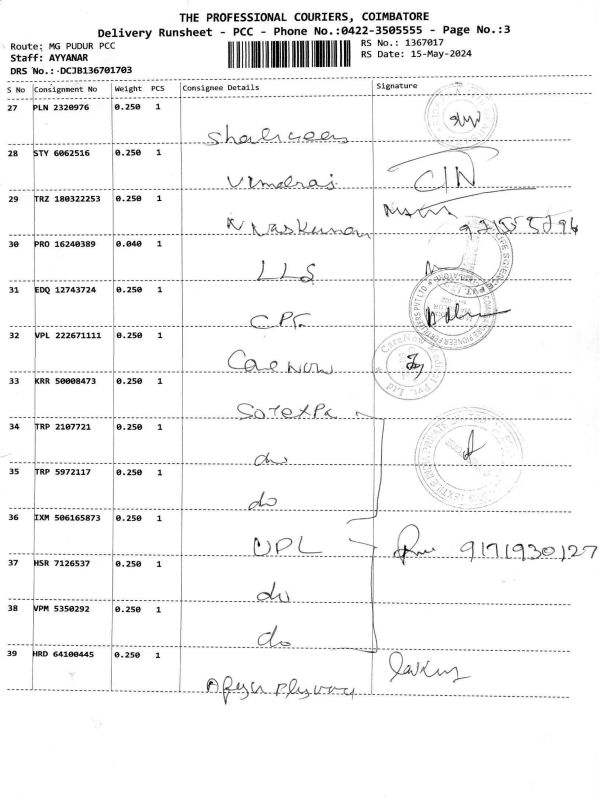 THE PROFESSIONAL COURIERS, COIMBATORE
Delivery Runsheet - PCC - Phone No.:0422-3505555 - Page No.:3
Route: MG PUDUR PCC
RS No.: 1367017
Staff: AYYANAR
RS Date: 15-May-2024
DRS No.: DCJB136701703
S No Consignment No Weight PCS Consignee Details Signature
27 PLN 2320976 0.250 1
28 STY 6062516 0.250 1
Vimalraj
29 TRZ 180322253 0.250 1
30 PRO 16240389 0.040 1
LLS
31 EDQ 12743724 0.250 1
CPF
32 VPL 222671111 0.250 1
Care now
33 KRR 50008473 0.250 1
34 TRP 2107721 0.250 1
do
35 TRP 5972117 0.250 1
do
36 IXM 506165873 0.250 1
UPL 9171930127
37 HSR 7126537 0.250 1
do
38 VPM 5350292 0.250 1
do
39 HRD 64100445 0.250 1